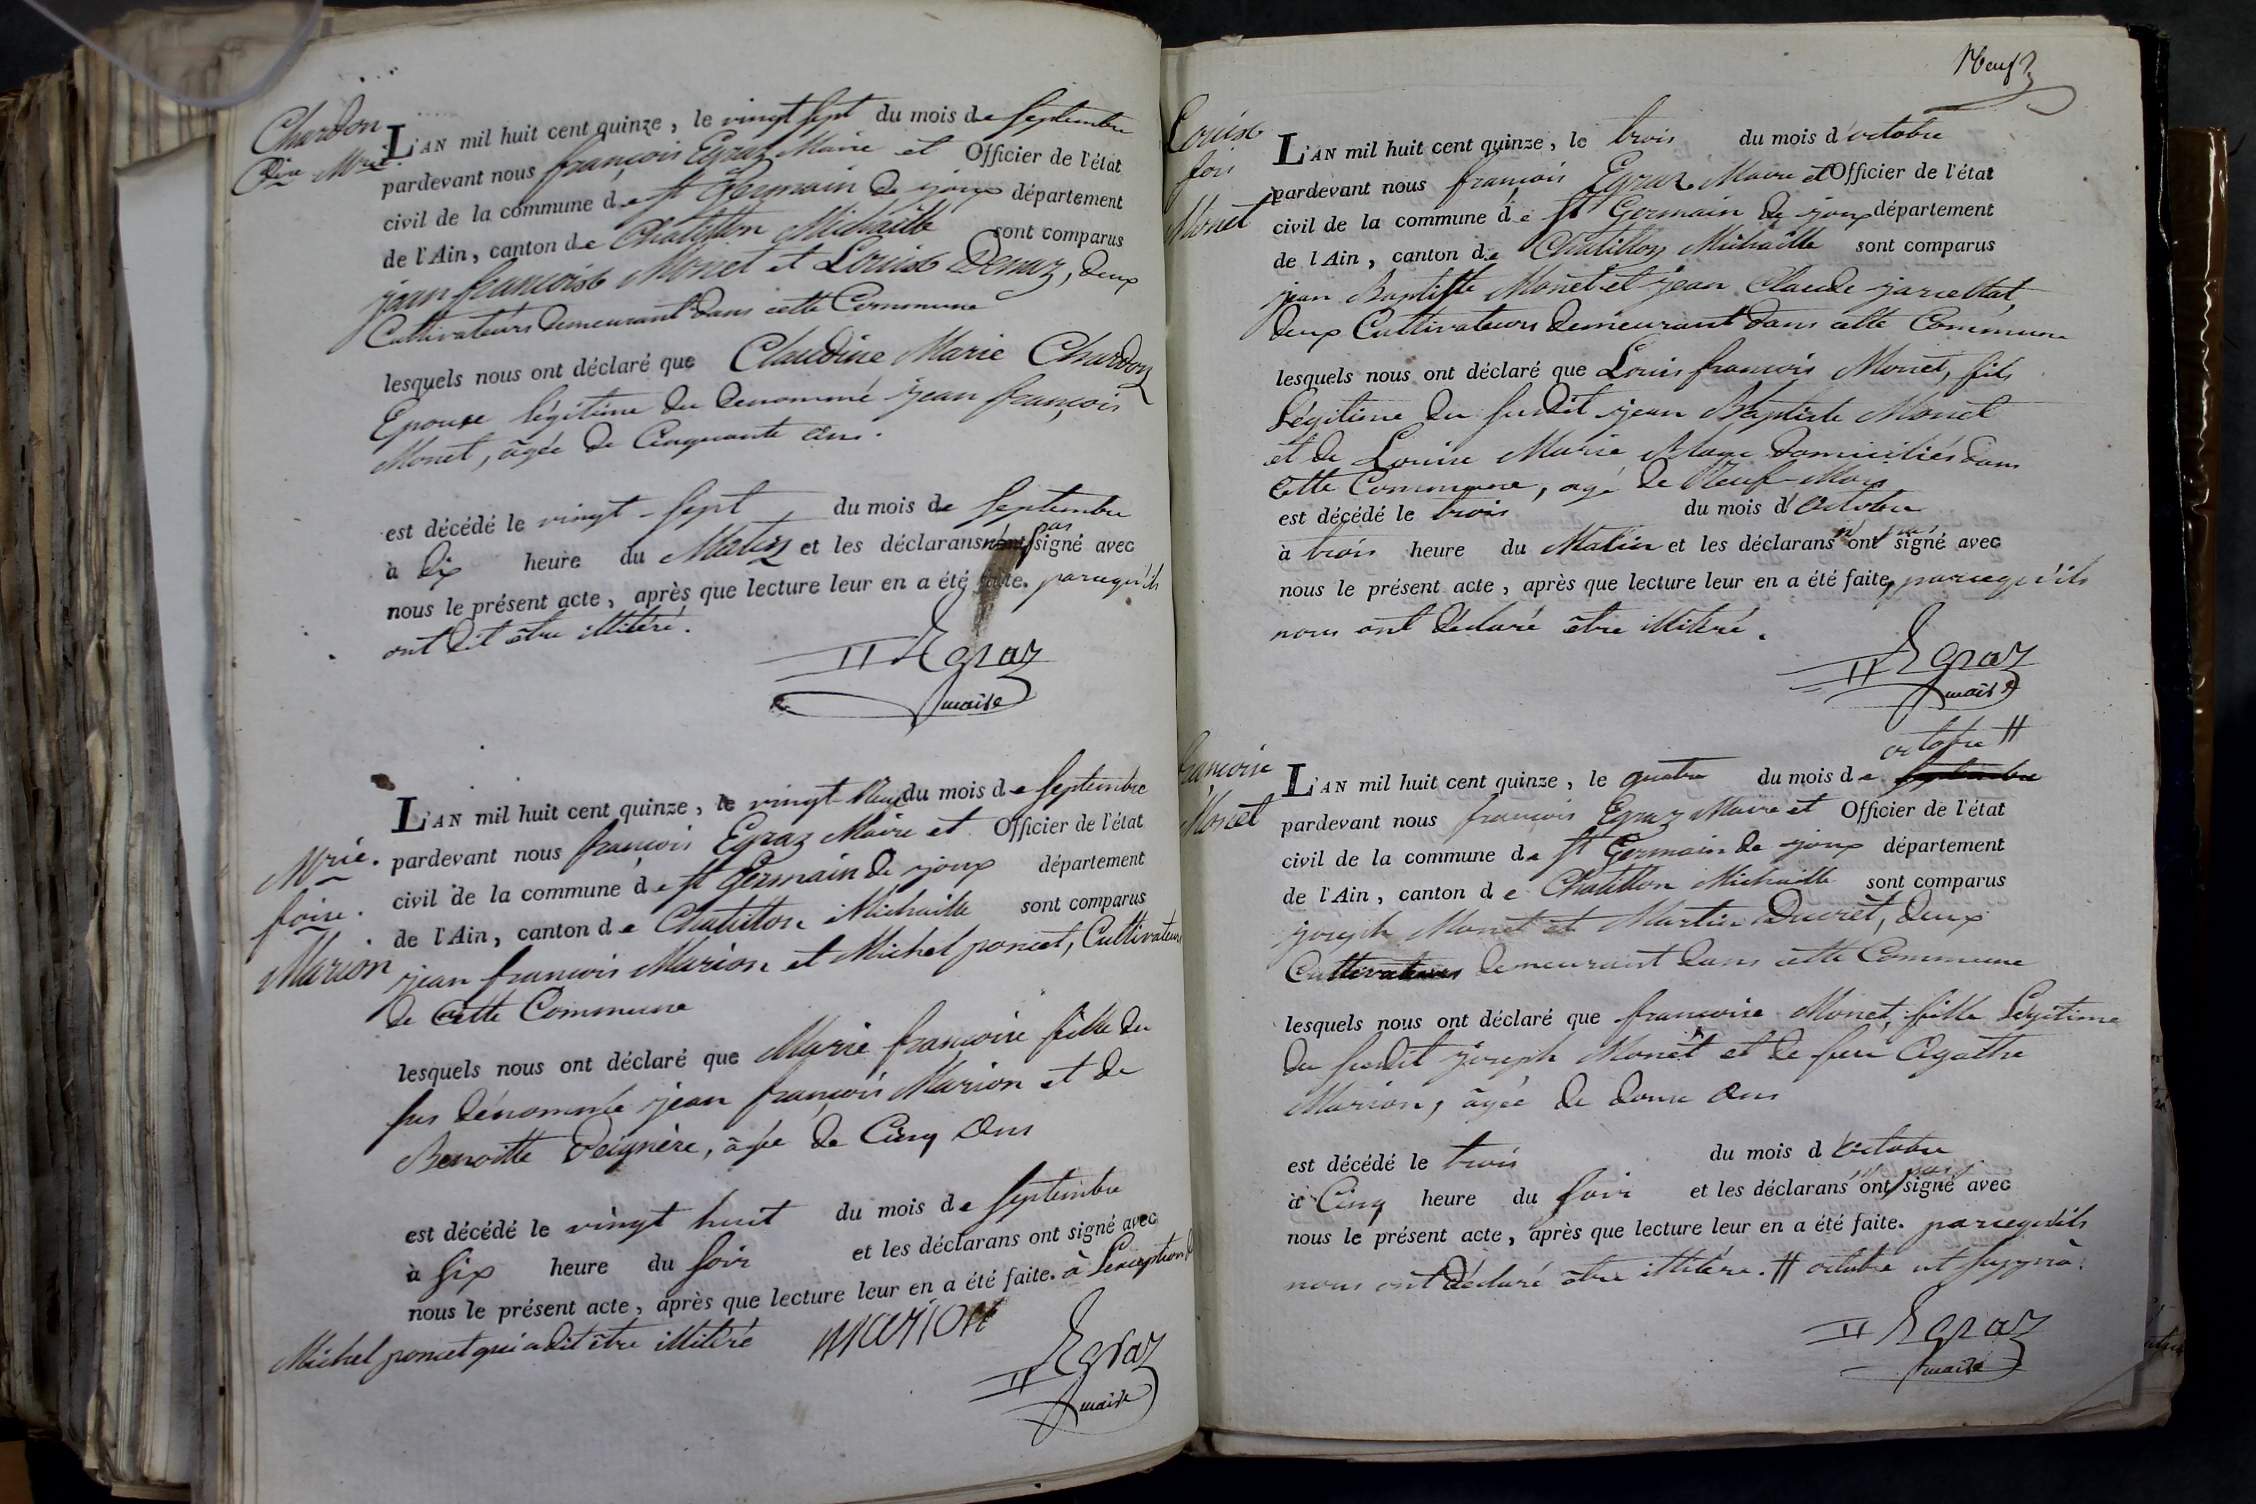 Chardon
Cine Mrie
L'AN mil huit cent quinze, le vingt sept du mois de septembre
pardevant nous françois Egraz Maire et Officier de l'état
civil de la commune de st Germain de joux département
de l'Ain, canton de Chatillon Michaille sont comparus
jean françois Monet et Louis Demaz, deux
Cultivateurs demeurant dans cette Commune
lesquels nous ont déclaré que Claudine Marie Chardon
Epouse légitime du denommé jean françois
Monet, agée de Cinquante ans.
est décédé le vingt-sept du mois de septembre
à dix heure du Matin et les déclarans n'ont pas signé avec
nous le présent acte, après que lecture leur en a été faite. parcequ'ils
ont dit être illitéré.
Egraz
maire
Mrie.
foise.
Marion
L'AN mil huit cent quinze, le vingt-neuf du mois de septembre
pardevant nous françois Egraz Maire et Officier de l'état
civil de la commune de st Germain de joux département
de l'Ain, canton de Chatillon Michaille sont comparus
jean françois Marion et Michel poncet, Cultivateurs
de cette Commune
lesquels nous ont déclaré que Marie françoise fille du
sus dénommée jean françois Marion et de
Benoitte, âgée de Cinq ans
est décédé le vingt huit du mois de septembre
à six heure du soir et les déclarans ont signé avec
nous le présent acte, après que lecture leur en a été faite. à l'exception de
Michel poncet qui a dit être illitéré
marion
Egraz
maire
Neuf
Louis
fois
Monet
L'AN mil huit cent quinze, le trois du mois d'octobre
pardevant nous françois Egraz Maire et Officier de l'état
civil de la commune de st Germain de joux département
de l'Ain, canton de Chatillon Michaille sont comparus
jean Baptiste Monet et jean Claude
deux Cultivateurs demeurant dans cette Commune
lesquels nous ont déclaré que Louis françois Monet, fils
Légitime du susdit jean Baptiste Monet
et de Louise Marie domiciliés dans
cette Commune, agé de Neuf Mois
est décédé le trois du mois d'octobre
à trois heure du Matin et les déclarans n'ont pas signé avec
nous le présent acte, après que lecture leur en a été faite, parcequ'ils
nous ont déclaré être illitéré.
Egraz
maire
françoise
Monet
octobre #
L'AN mil huit cent quinze, le quatre du mois de septembre
pardevant nous françois Egraz Maire et Officier de l'état
civil de la commune de st Germain de joux département
de l'Ain, canton de Chatillon Michaille sont comparus
joseph Monet et Martin Ducrêt, deux
Cultivateurs demeurant dans cette Commune
lesquels nous ont déclaré que françoise Monet, fille Légitime
du susdit joseph Monet et de feu Agathe
Marion, agée de douze ans
est décédé le trois du mois d'octobre
à Cinq heure du soir et les déclarans n'ont pas signé avec
nous le présent acte, après que lecture leur en a été faite. parcequ'ils
nous ont déclaré être illitére. # octobre ut suprà.
Egraz
maire